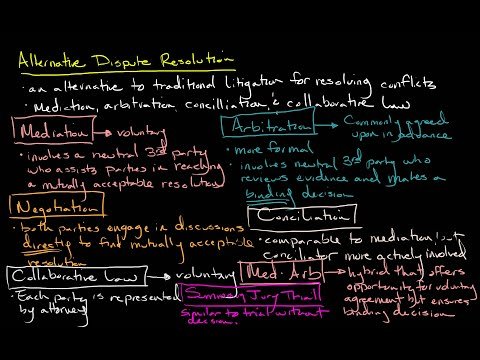 Alternative Dispute Resolution
· an alternative to traditional litigation for resolving conflicts
· Mediction, arbitration, concilliation, & collaborative law
Mediation → voluntary
· involves a neutral 3rd party
who assists parties in reaching
a mutually acceptable resolution
Arbitration → Commonly agreed
upon in advance
· more formal
· involves neutral 3rd party who
reviews evidence and makes a
binding decision
Negotiation
· both parties engage in discussions
directly to find mutually acceptable
resolution
Conciliation
· comparable to mediation, but
conciliator more actively involved
Collaborative Law → voluntary
· Each party is represented
by attorney
Med-Arb → hybrid that offers
opportunity for voluntary
agreement but ensures
binding decision
Summary Jury Trial
similar to trial without
decision.